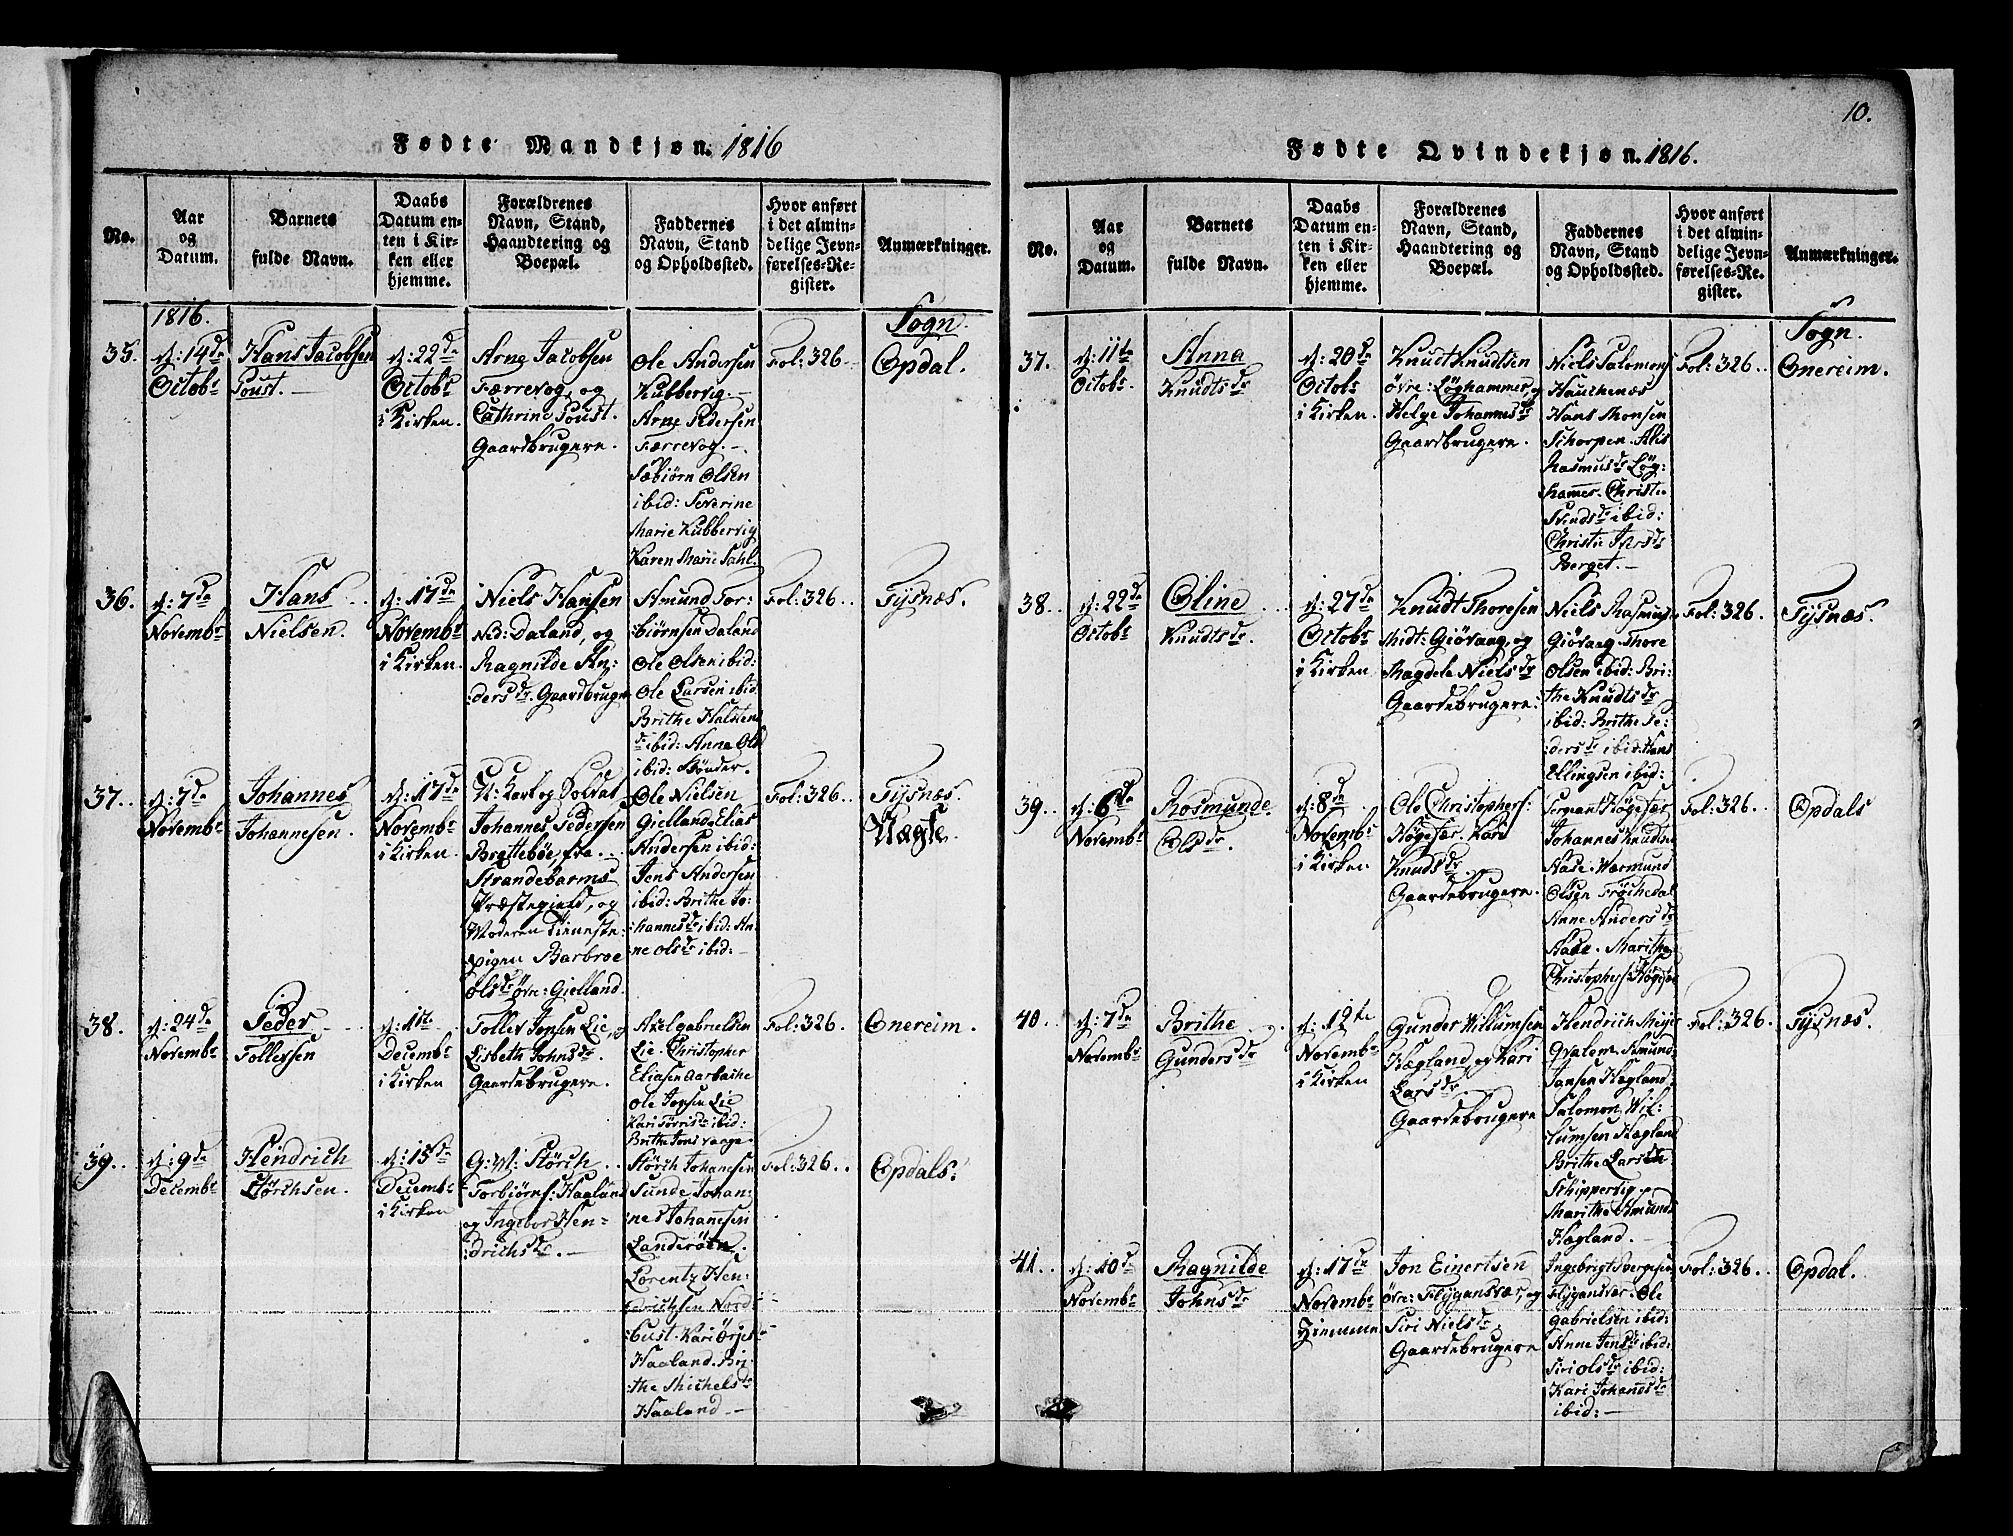 10.
Fødte Mandkjøn. 1816
No.
Aar
og
Datum.
Barnets
fulde Navn.
Daabs
Datum en-
ten i Kir-
ken eller
hjemme.
Forældrenes
Navn, Stand,
Haandtering og
Boepæl.
Faddernes
Navn, Stand
og Opholdssted.
Hvor anført
i det almin-
delige Jevn-
førelses-Re-
gister.
Anmærkninger.
1816.
Sogn.
35.
d: 14de
Octobr
Hans Jacobsen
Foust.
d: 22de
Octobr
i Kirken.
Arne Jacobsen
Færrevog, og
Cathrine Foust.
Gaardbrugere.
Ole Andersen
Kubbervig.
Arne Pedersen
Færrevog.
Sæbiörn Olsen
ibid: Severine
Marie Kubbervig
Karen Marie Dahl.
Fol: 326
Opdal.
36.
d: 7de
Novembr
Hans
Nielsen.
d: 17de
Novembr
i Kirken.
Niels Hansen
Ned: Daland, og
Ragnilde An:
:ders dr. Gaardbruger
Amund Tor:
:biörnsen Daland
Ole Olsen ibid:
Ole Larsen ibid
Brithe Halstens
dr ibid: Anna Ols
ibid: Bönder.
Fol: 326.
Tysnæs.
37.
d: 7de
Novembr
Johannes
Johannesen.
d: 17de
Novembr
i Kirken.
U: Karl og Soldat
Johannes Pedersen
Brattebøe, fra
Strandebarms
Præstegield, og
Moderen Tieneste:
pigen Barbroe
Olsdr Øvre: Gielland.
Ole Nielsen
Gielland. Elias
Andersen ibid:
Jens Andersen
ibid: Brithe Jo:
:hannesdr ibid: An:
:ne Olsdr ibid:
Fol: 326.
Tysnæs.
Uægte.
38.
d: 24de
Novembr
Peder
Tollefsen
d: 1te
Decembr
i Kirken
Tollef Jonsen Lie, og
Lisbeth Johnsdr.
Gaardebrugere.
Axel Gabrielsen
Lie. Christopher
Eliasen Aarbakke
Ole Jonsen Lie
Kari Törrisdr ibid:
Brithe Jons Vange
Fol: 326.
Onereim.
39.
d: 9de
Decembr
Hendrich
Störchsen.
d: 15de
Decembr
i Kirken
G: M: Störch
Torbiörns: Haaland
og Ingebor Hen=
:drichsdr.
Störch Johanesen
Sunde. Johan:
:nes Johanesen
Landeröen.
Lorentz Hen:
:drichsen Nord:
:hust. Kari Örjes:
Haaland. Bri:
:the Michelsdr
Haaland
Fol: 326.
Opdals.
Fødte Qvindekjøn. 1816.
No.
Aar
og
Datum.
Barnets
fulde Navn.
Daabs
Datum en-
ten i Kir-
ken eller
hjemme.
Forældrenes
Navn, Stand,
Haandtering og
Boepæl.
Faddernes
Navn, Stand
og Opholdssted.
Hvor anført
i det almin-
delige Jevn-
førelses-Re-
gister.
Anmærkninger.
Sogn.
37.
d: 11te
Octobr.
Anna
Knudtsdr
d: 20de
Octobr
i Kirken.
Knudt Knudtsen
øvre: Løghammer, og
Helge Johannesdr
Gaardbrugere.
Niels Salomons
Hauchenæs
Hans Monsen
Schorpen. Alis
Rasmusdr Løg:
hamer. Christie
Svendsdr ibid:
Christie Iversdr
Berget.
Fol: 326.
Onereim.
38.
d: 22de
Octobr
Oline
Knudtsdr.
d: 27de
Octobr
i Kirken.
Knudt Thoresen
Midt: Giövaag, og
Magdele Nielsdr
Gaardebrugere:
Niels Rasmus
Giövaag. Thore
Olsen ibid: Bri:
the Knudtsdr
ibid: Brithe Pe:
:dersdr ibid. Hans
Ellingsen ibid:
Fol: 326.
Tysnæs.
39.
d: 6te
Novembr
Rosmunde
Olsdr.
d: 8de
Novembr
i Kirken.
Ole Christophers:
Høgesæt. Kari
Knudsdr.
Gaardebrugere.
Sergeant Høgesæt
Johannes Knudtsen
Aase. Wermund
Olsen Fröchedal
Anne Andersdr
Aase. Marithe
Christophers Høgesæt
Fol: 326.
Opdals
40.
d: 7de
Novembr
Brithe
Gundersdr
d: 19te
Novembr
i Kirken
Gunder Villumsen
Hægland, og Kari
Larsdr
Gaardebrugere
Hendrich Meyer
Gvalem. Amund
Jansen Hægland
Salomon Wil:
:lumsen Hægland
Brithe Larsdr
Schippervig.
Marithe Amunds
Hægland.
Fol: 326.
Tysnæs.
41.
d: 10de
Novembr
Ragnilde
Johnsdr
d: 17de
Novembr
Hiemme
Jon Einertsen
øvre: Flygansvær, og
Siri Nielsdr
Gaardebrugere
Ingebrigt Svergesen
Flygansvær. Ole
Gabrielsen ibid:
Anne Jensdr ibid:
Siri Olsdr ibid:
Kari Johanesdr
ibid:
Fol: 326.
Opdal.